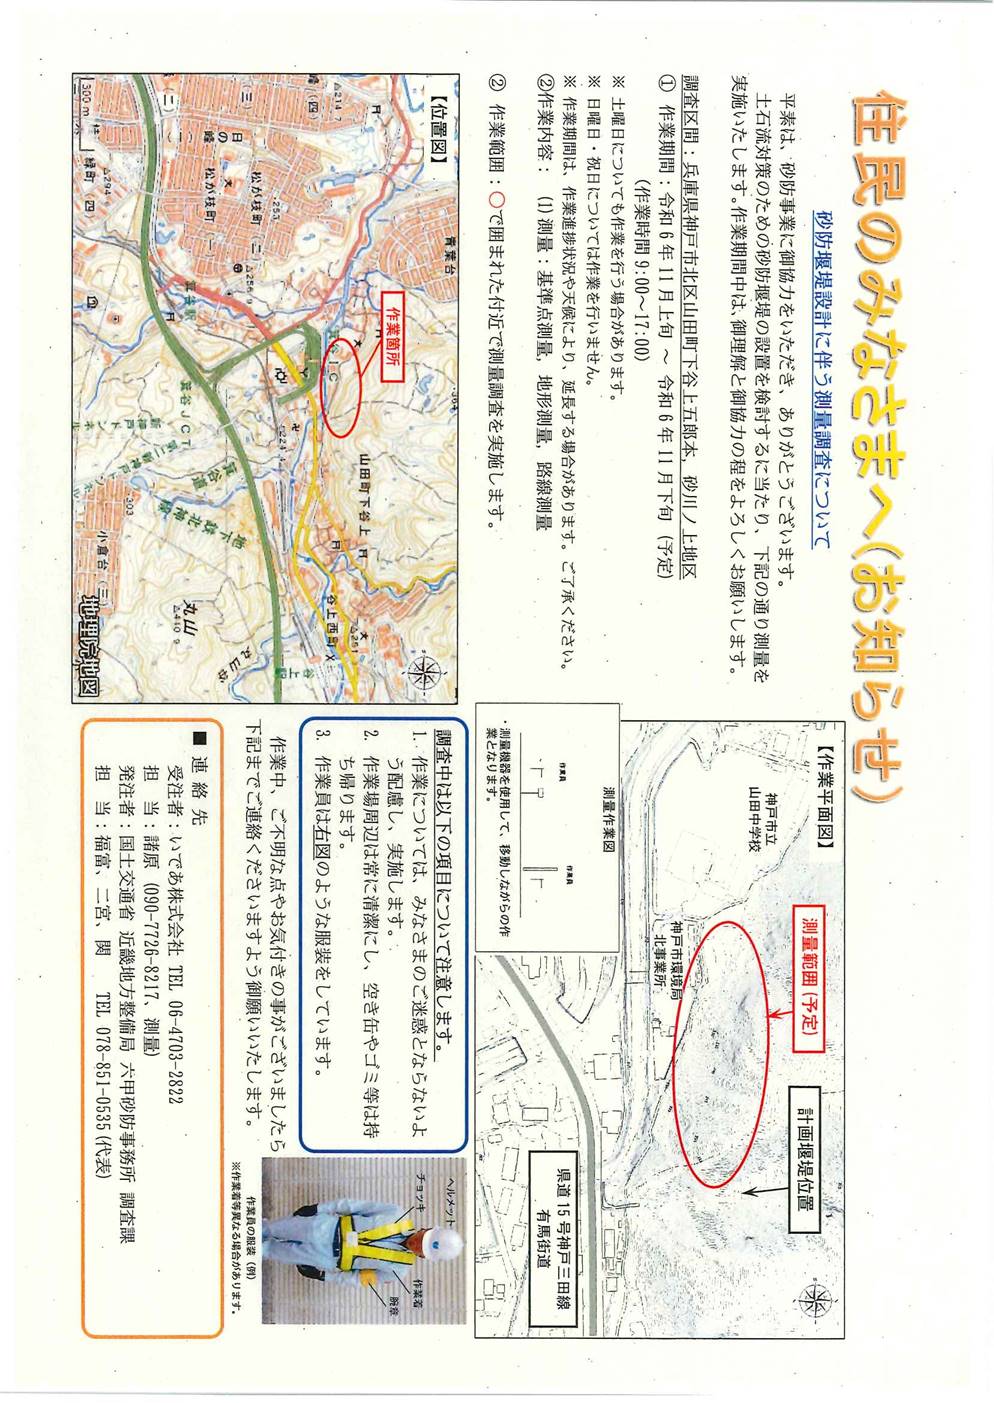 住民のみなさまへ(お知らせ)
砂防堰堤設計に伴う測量調査について
平素は、砂防事業に御協力をいただき、ありがとうございます。
土石流対策のための砂防堰堤の設置を検討するに当たり、下記の通り測量を
実施いたします。作業期間中は、御理解と御協力の程をよろしくお願いします。
調査区間：兵庫県神戸市北区山田町下谷上五郎本，砂川ノ上地区
① 作業期間：令和6年11月上旬 ～ 令和6年11月下旬 (予定)
(作業時間 9:00～17:00)
※ 土曜日についても作業を行う場合があります。
※ 日曜日・祝日については作業を行いません。
※ 作業期間は、作業進捗状況や天候により、延長する場合があります。ご了承ください。
②作業内容： (1) 測量：基準点測量，地形測量，路線測量
② 作業範囲：○で囲まれた付近で測量調査を実施します。
【位置図】
作業箇所
青葉台
日の峰
松が枝町(二)
松が枝町(一)
緑町(四)
箕谷駅
箕谷IC
箕谷JCT
新神戸トンネル
箕谷道
地下鉄北神線
山田町下谷上
谷上西町
谷上駅
小倉台(三)
丸山
300m
地理院地図
【作業平面図】
神戸市立
山田中学校
測量範囲(予定)
計画堰堤位置
神戸市環境局
北事業所
県道15号神戸三田線
有馬街道
測量作業図
作業員
作業員
・測量機器を使用して、移動しながらの作
業となります。
調査中は以下の項目について注意します。
1. 作業については、みなさまのご迷惑とならないよ
う配慮し、実施します。
2. 作業場周辺は常に清潔にし、空き缶やゴミ等は持
ち帰ります。
3. 作業員は右図のような服装をしています。
ヘルメット
チョッキ
作業着
腕章
作業員の服装（例）
※作業着等異なる場合があります。
作業中、ご不明な点やお気付きの事がございましたら
下記までご連絡くださいますよう御願いいたします。
■ 連絡先
受注者：いであ株式会社 TEL 06-4703-2822
担　当：諸原 (090-7726-8217、測量)
発注者：国土交通省 近畿地方整備局 六甲砂防事務所 調査課
担　当：福富、二宮、関 TEL 078-851-0535(代表)